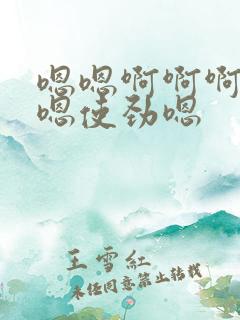 嗯嗯啊啊啊
嗯使劲嗯
王雪红
未经同意禁止转载